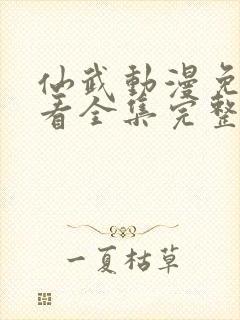 仙武動漫免
看全集完整
一夏枯草